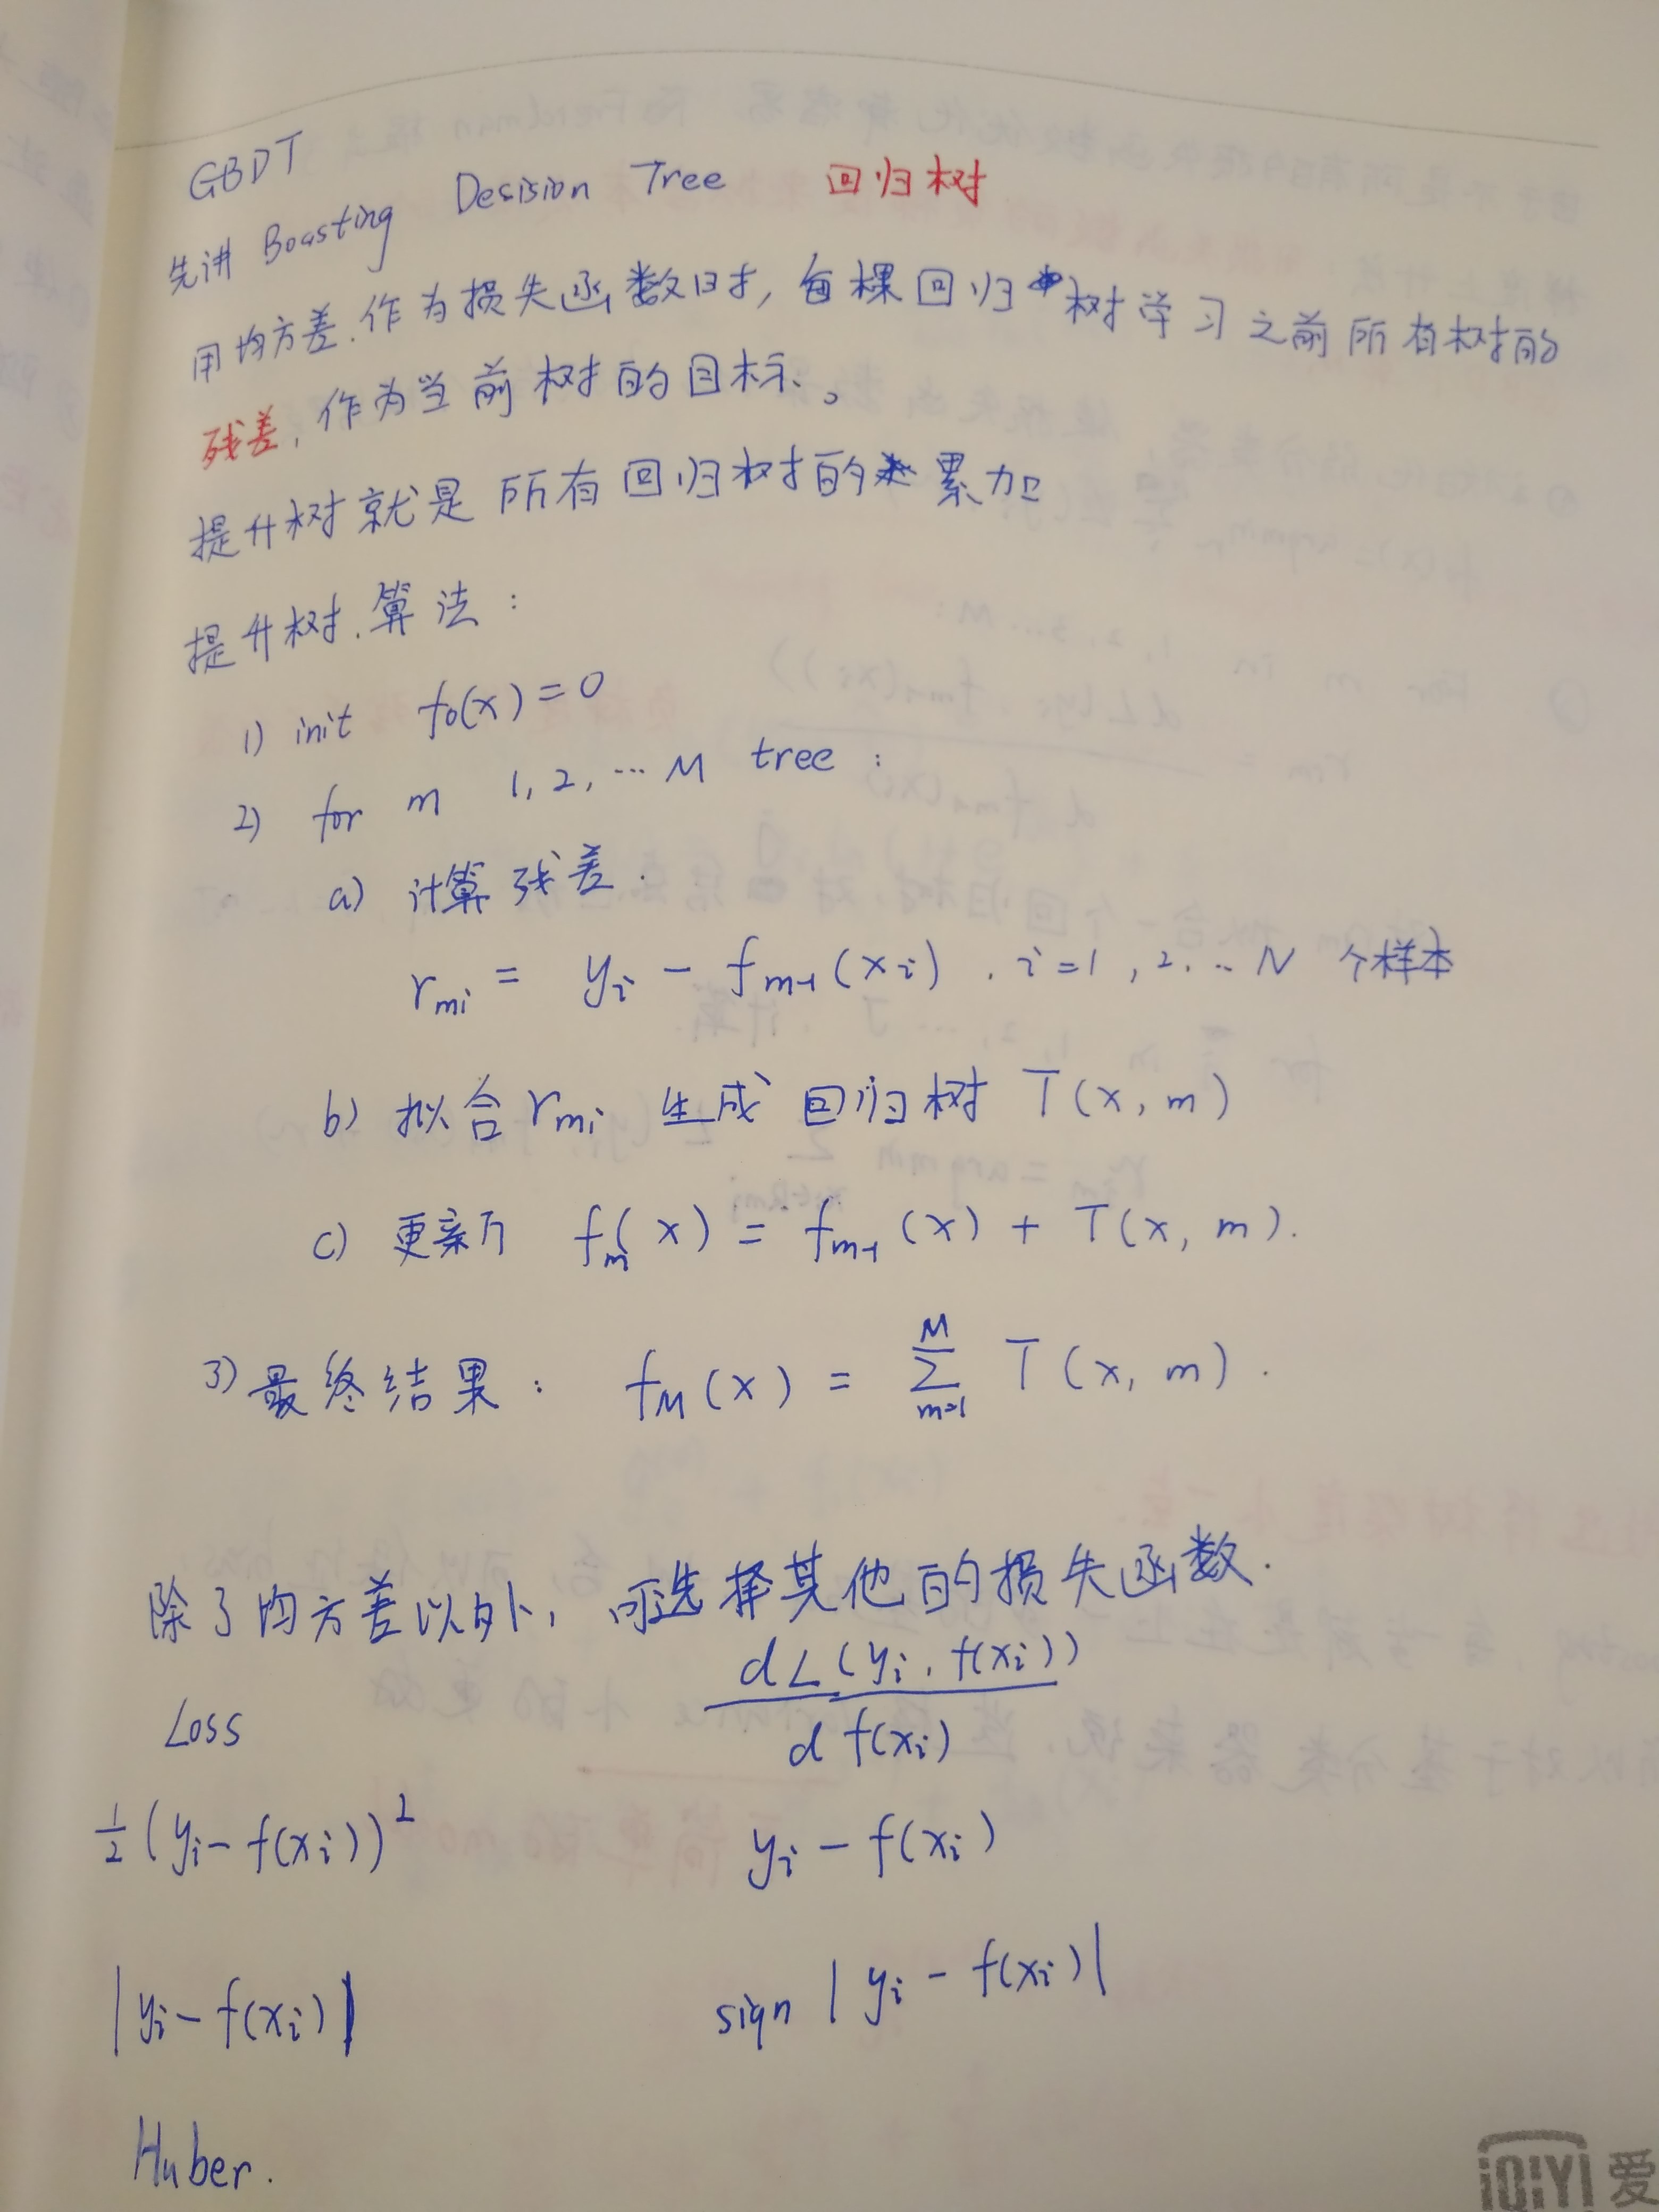 GBDT
先讲 Boosting Decision Tree 回归树
用均方差.作为损失函数时, 每棵回归树学习之前所有树的
残差, 作为当前树的目标。
提升树就是所有回归树的累加
提升树.算法:
1) init f₀(x) = 0
2) for m 1, 2, ... M tree :
a) 计算残差.
r_mi = yᵢ - f_m-1(xᵢ) . i=1, 2... N 个样本
b) 拟合 r_mi 生成回归树 T(x, m)
c) 更新 f_m(x) = f_m-1(x) + T(x, m).
3) 最终结果: f_M(x) = Σ_{m=1}^{M} T(x, m).
除了均方差以外, 可选择其他的损失函数.
Loss dL(yᵢ, f(xᵢ)) / d f(xᵢ)
½(yᵢ - f(xᵢ))² yᵢ - f(xᵢ)
|yᵢ - f(xᵢ)| sign |yᵢ - f(xᵢ)|
Huber.
iQIYI 爱